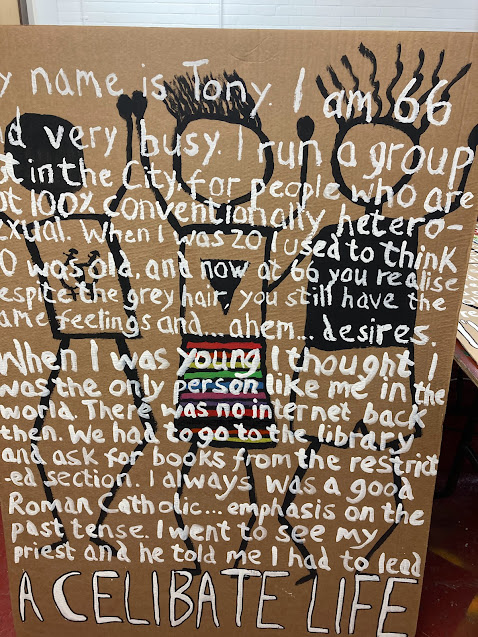 y name is Tony. I am 66
nd very busy. I run a group
in the City, for people who are
ot 100% conventionally hetero-
exual. When I was 20 I used to think
0 was old, and now at 66 you realise
espite the grey hair, you still have the
ame feelings and... ahem... desires.
When I was young I thought I
was the only person like me in the
world. There was no internet back
then. We had to go to the library
and ask for books from the restrict
-ed section. I always was a good
Roman Catholic... emphasis on the
past tense. I went to see my
priest and he told me I had to lead
A CELIBATE LIFE